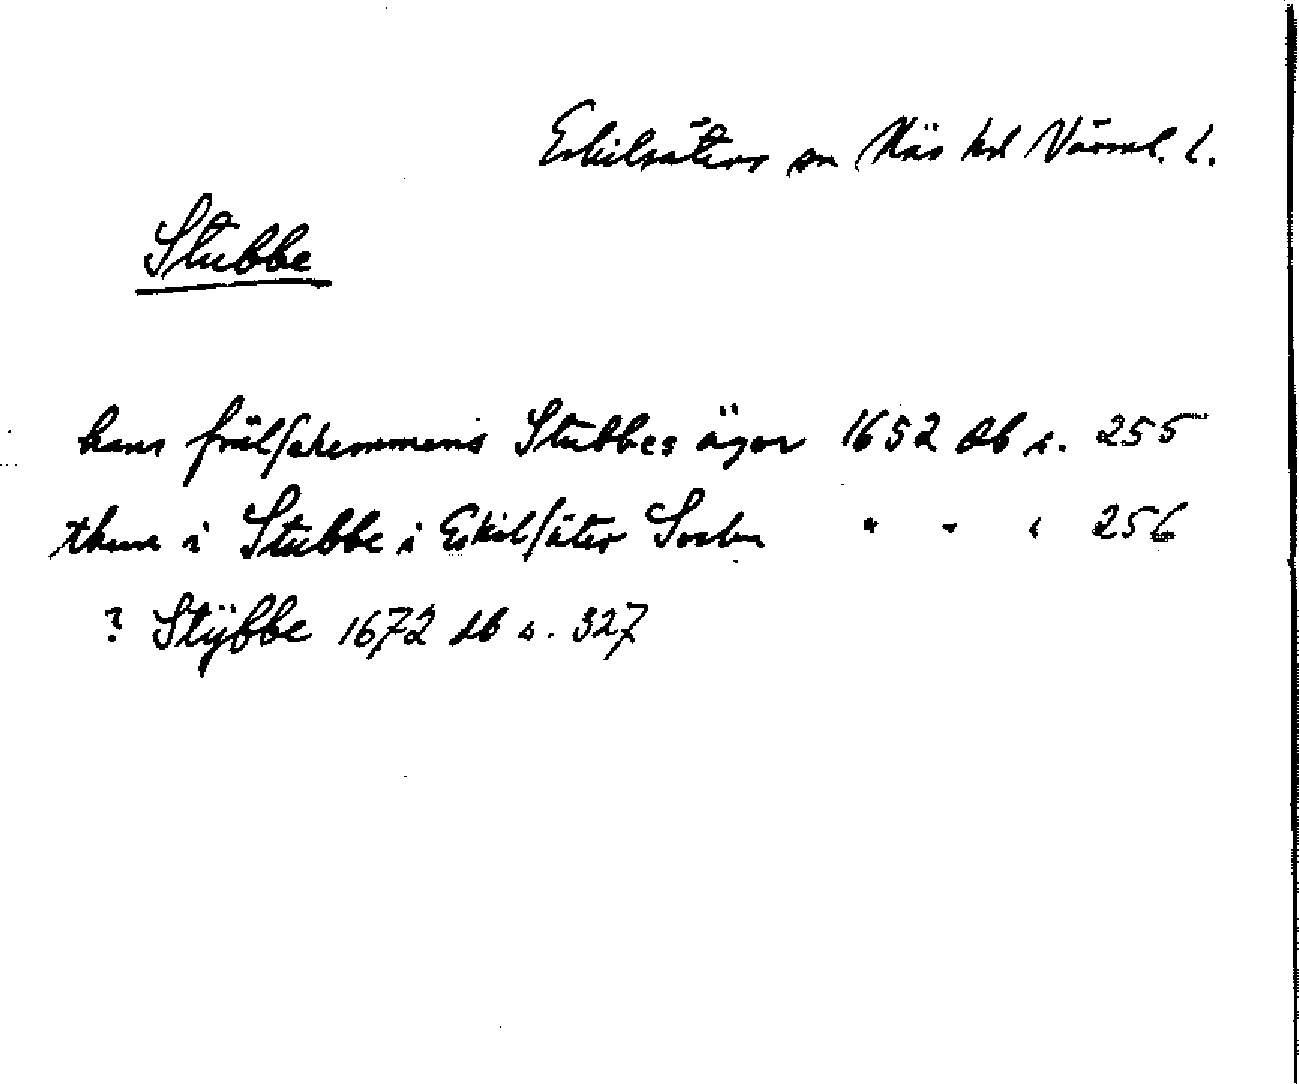 Eskilsäters sn Näs hd Värml. l.
Stubbe
hans frälsehemmens Stubbes ägor 1652 db s. 255
thum i Stubbe i Eskilsäter Sochn " " " 256
? Stÿbbe 1672 db s. 327